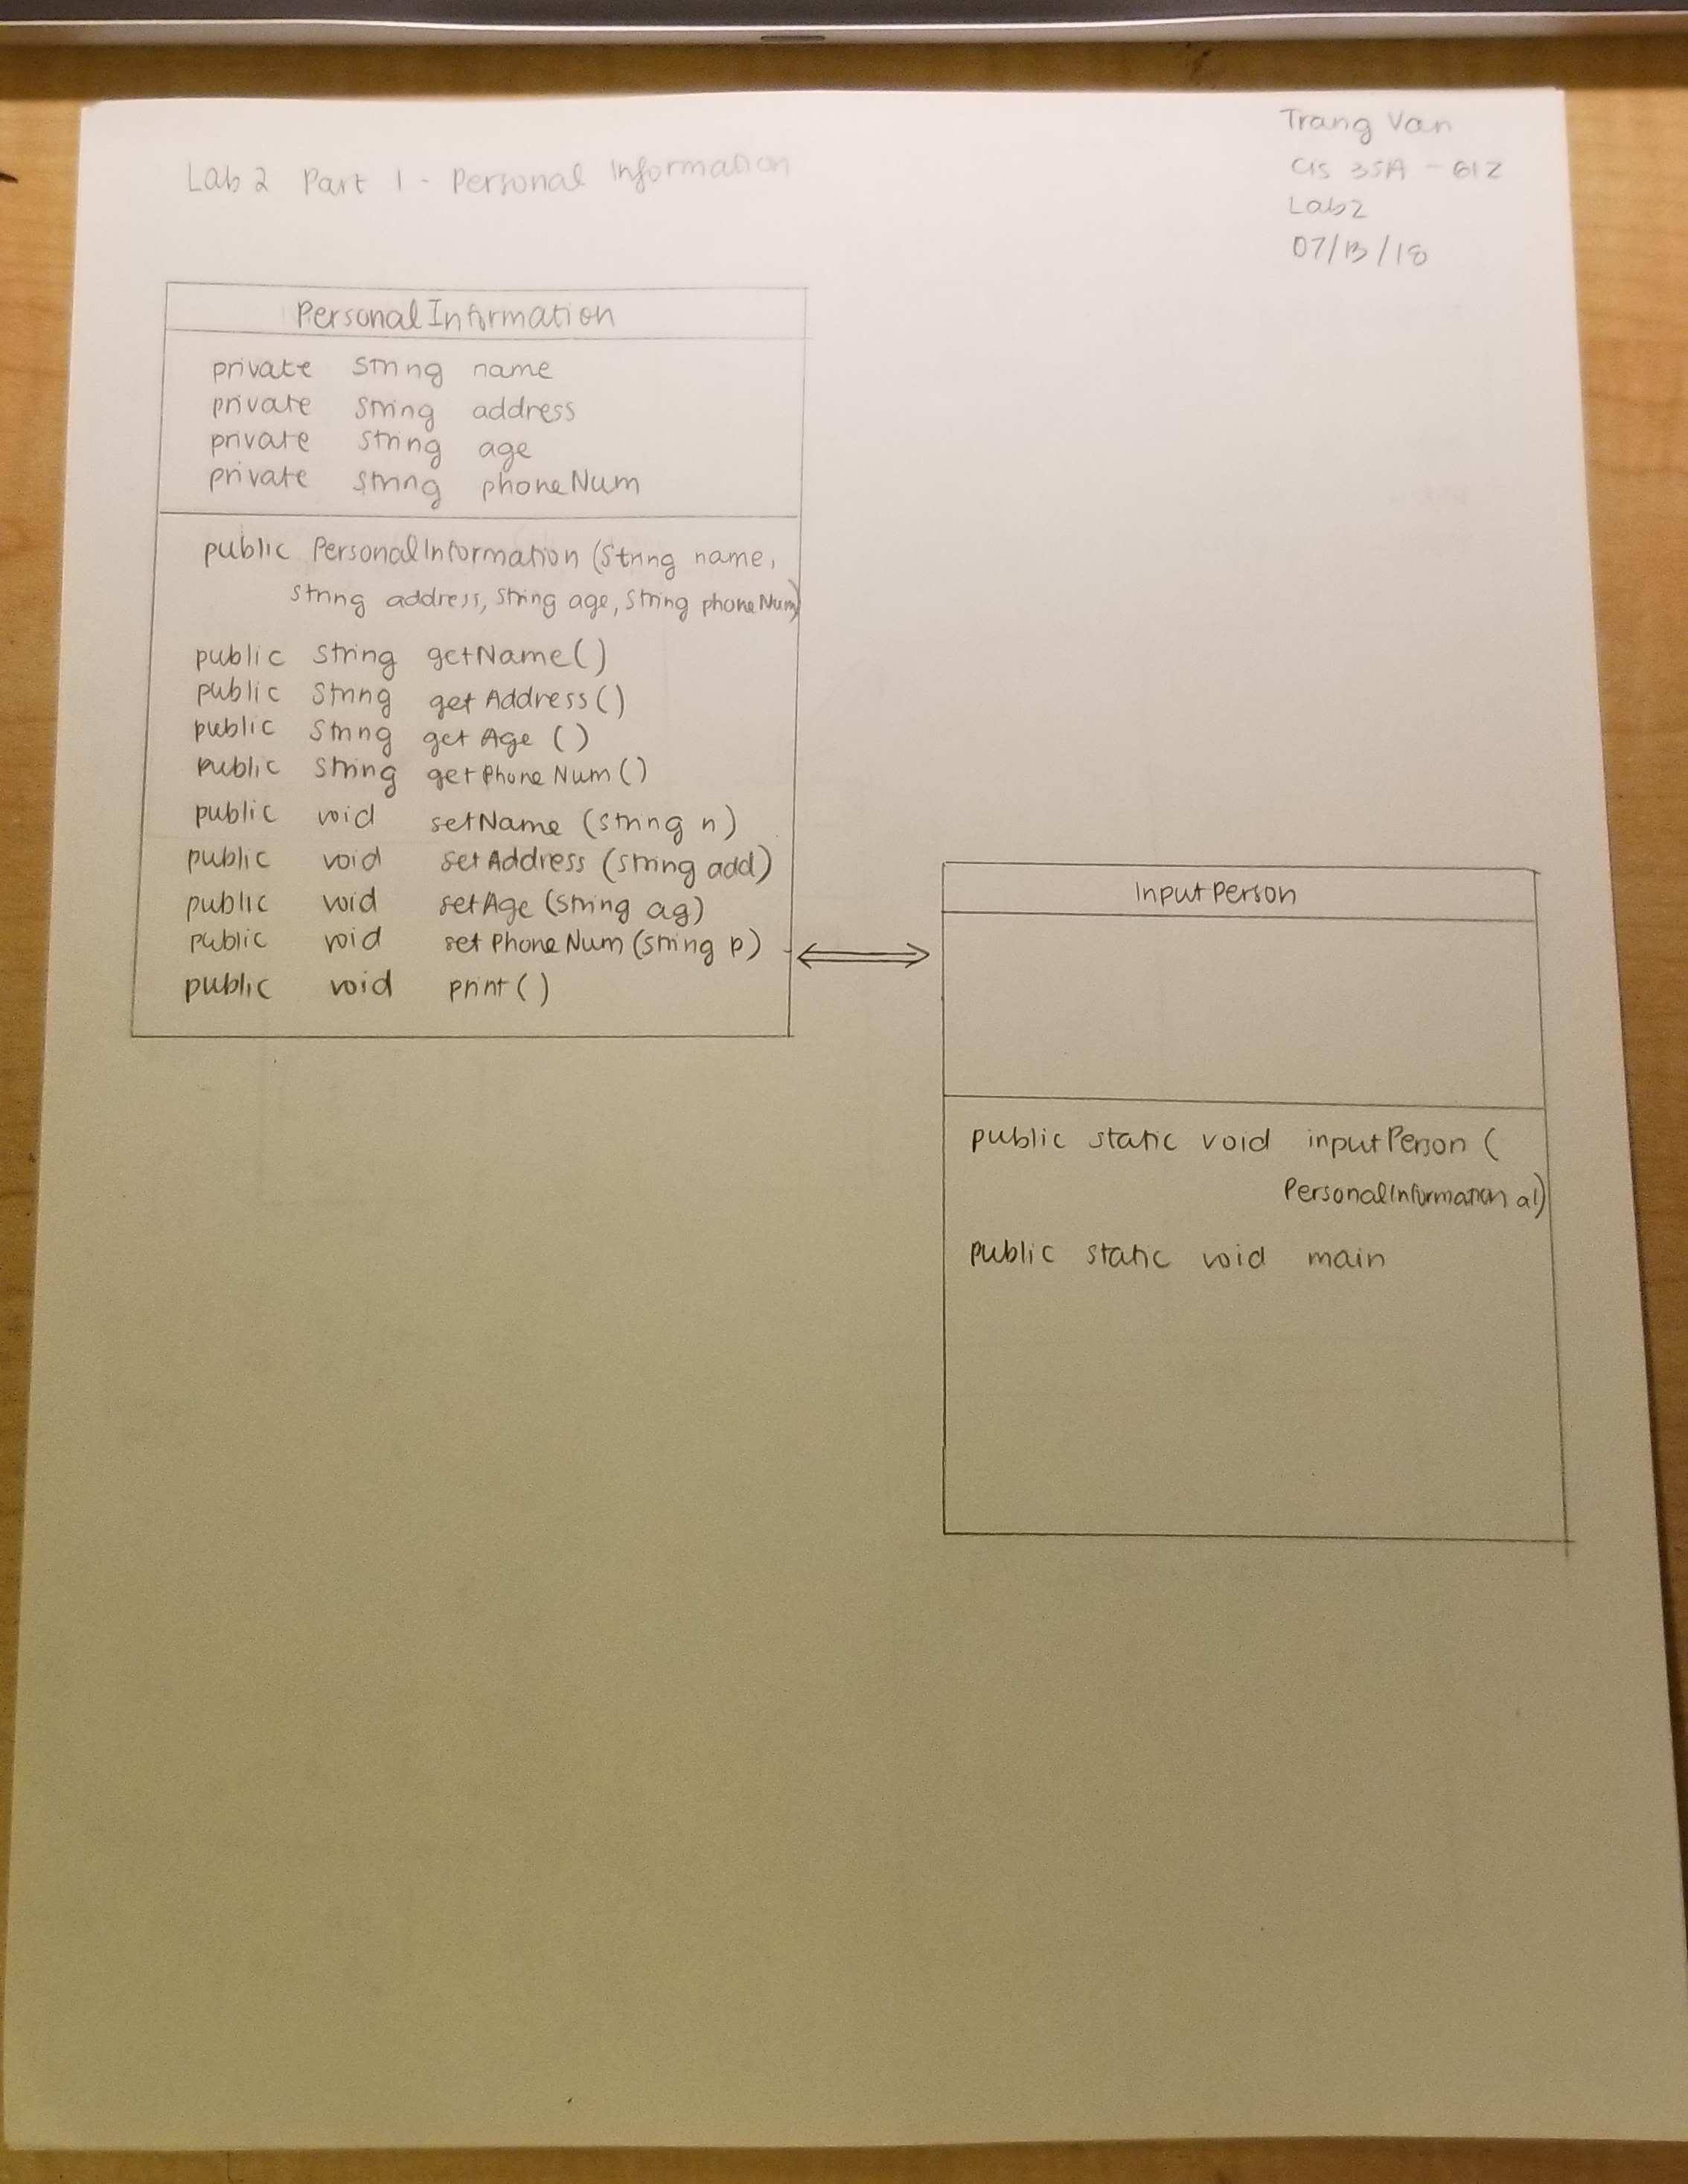 Trang Van
CIS 35A - 61Z
Lab2
07/13/18
Lab 2 Part 1 - Personal Information
PersonalInformation
private String name
private String address
private String age
private String phoneNum
public PersonalInformation (String name,
String address, String age, String phoneNum)
public String getName()
public String getAddress()
public String getAge ()
public String getPhoneNum()
public void setName (String n)
public void setAddress (String add)
public void setAge (String ag)
public void setPhoneNum (String p)
public void print()
InputPerson
public static void inputPerson (
PersonalInformation a1)
public static void main